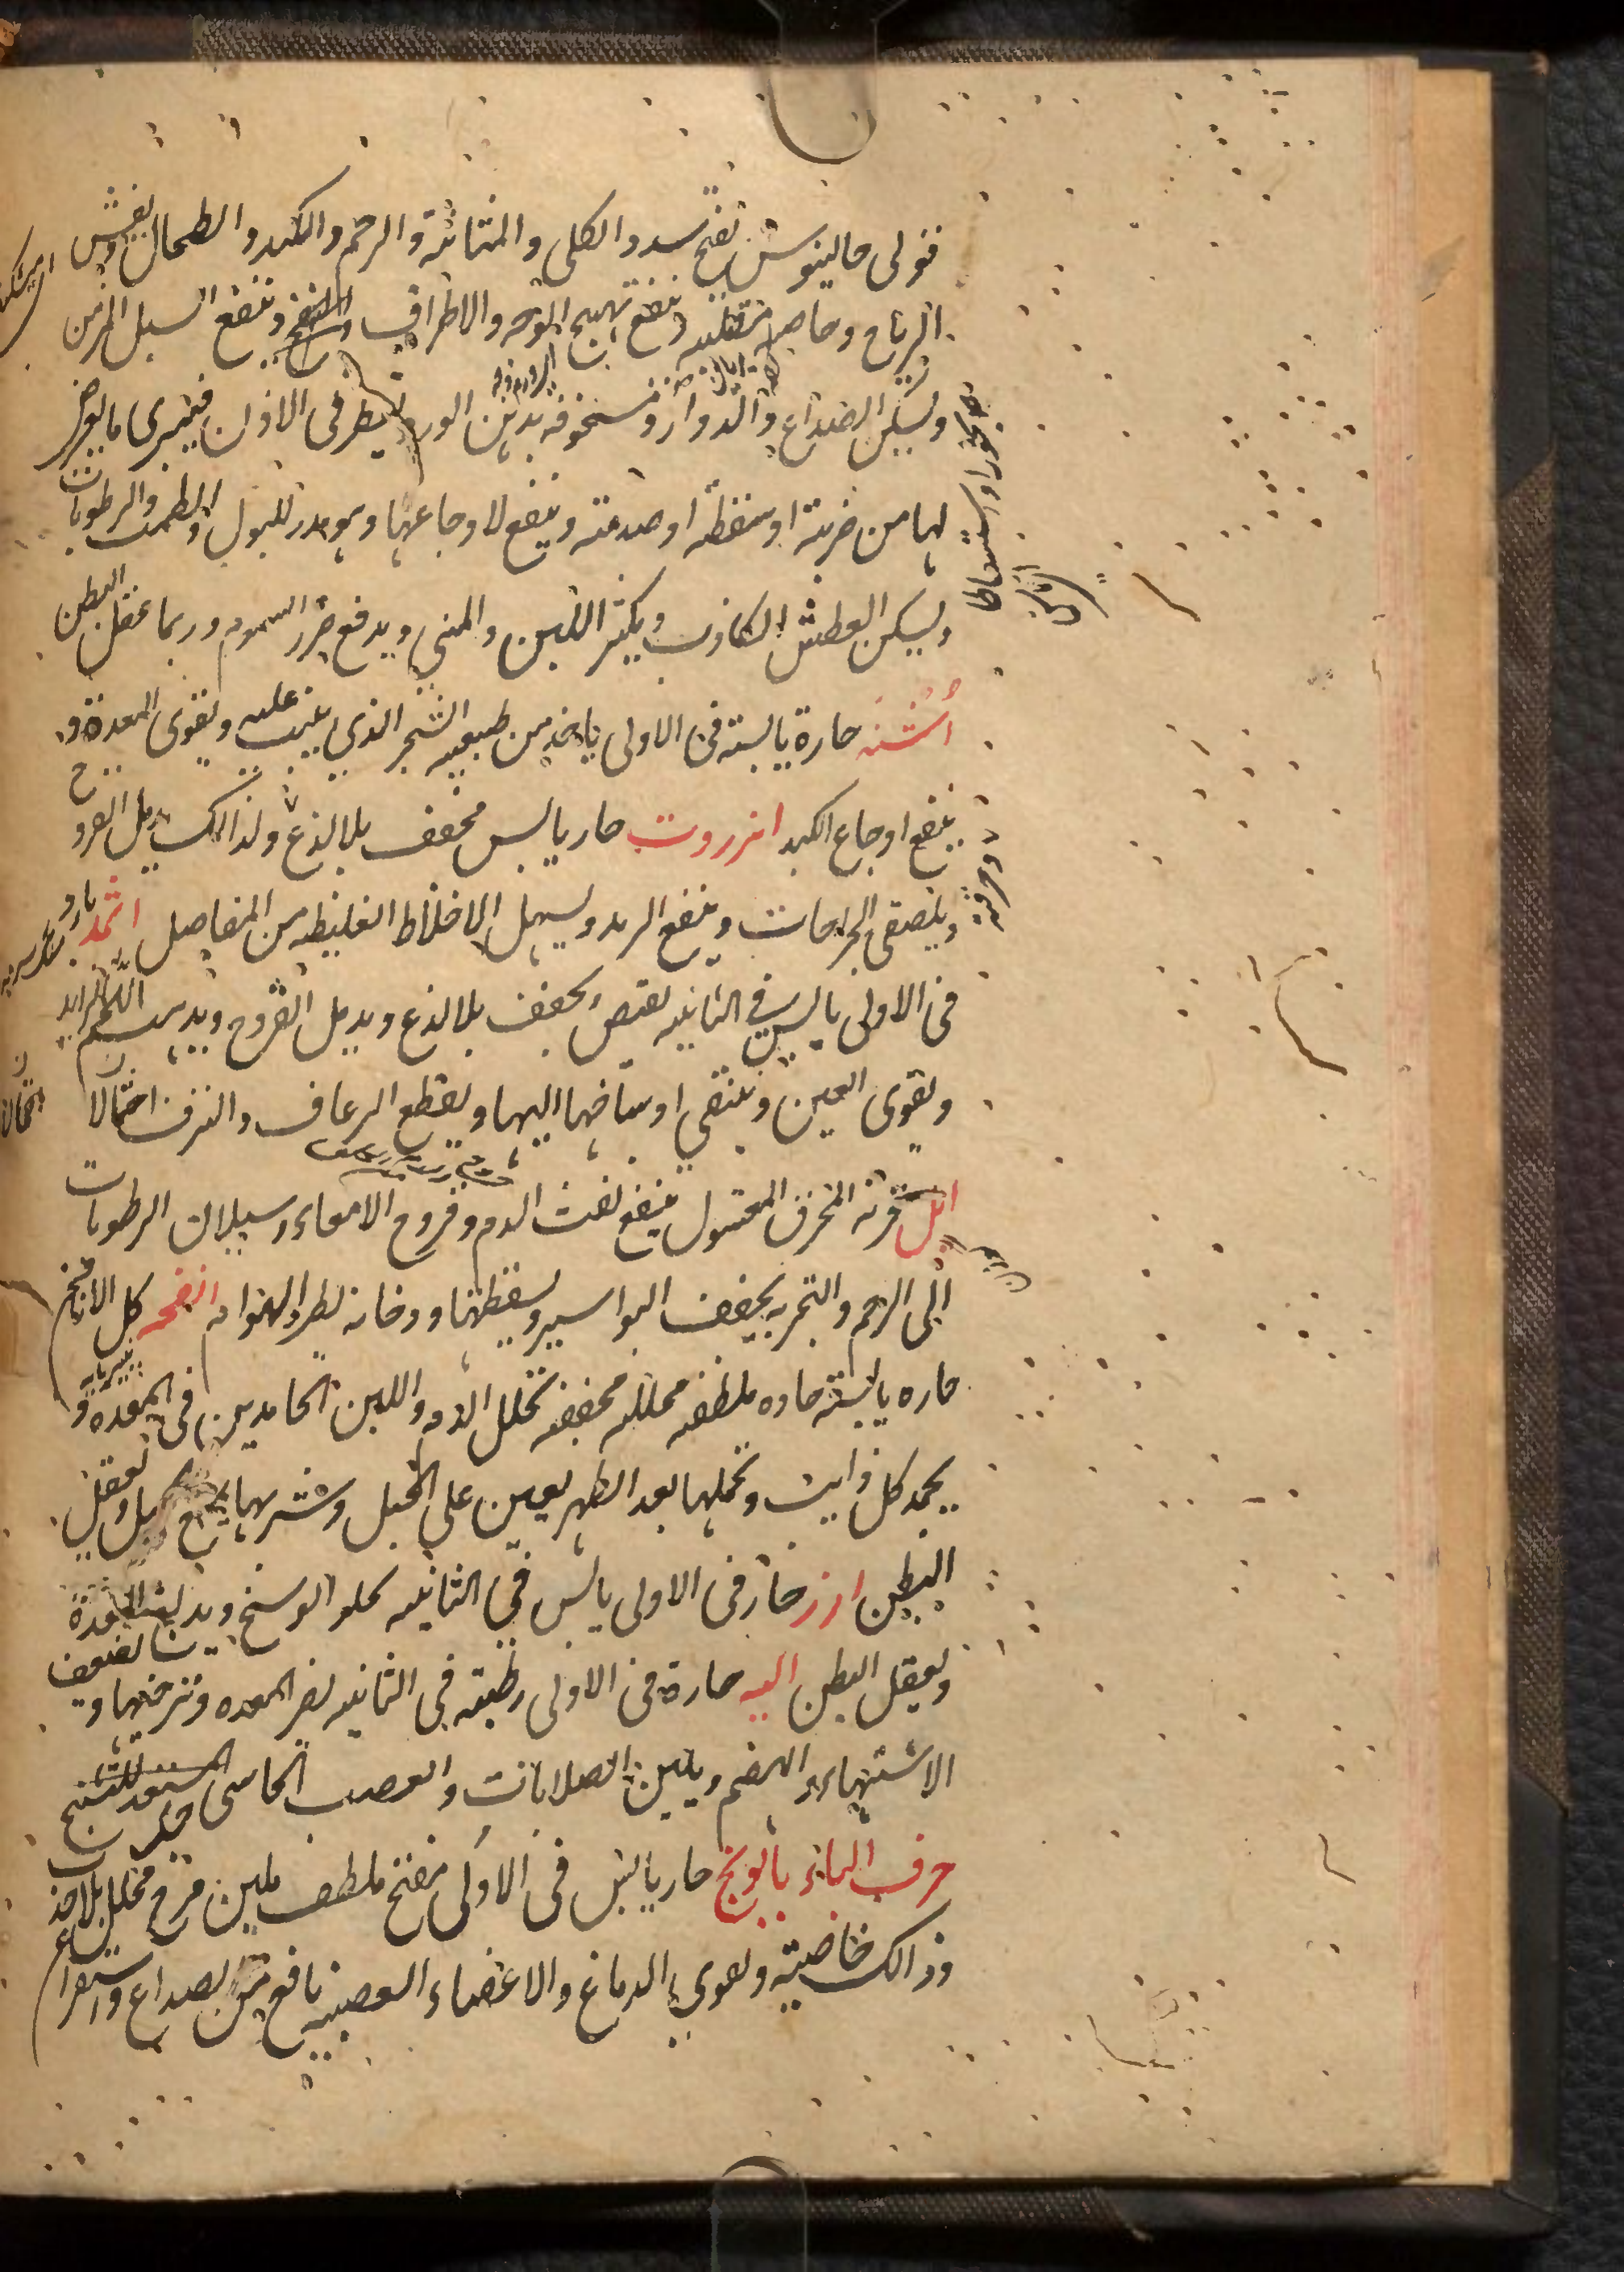 قول جالينوس تفتح سدد الكلى والمثانة والرحم والكبد والطحال يفش
الرياح وخاصه مقليه وينفع تهيج الوجه والاطراف وينفع السبل المزمن
ويسكن الصداع والدوار ومسحوقه بدهن الورد يقطر فى الاذن فيبرى ما يعرض
لها من ضربة او سقطة او صدمته وينفع لاوجاعها وهو مدر للبول والطمث والرطوبات
ويسكن العطش الكاذب ويكثر اللبن والمنى ويدفع ضرر السموم وربما عقل البطن
أشنه حارة يابسته فى الاولى ياخذ من طبيعه الشجر الذي ينبت عليه ويقوى المعدة و
ينفع اوجاع الكبد انزروت حار يابس مجفف بلا لذع ولذالك يدمل القروح
ويلصق الجراحات وينفع الرمد ويسهل الاخلاط الغليظه من المفاصل اثمد بارد
فى الاولى يابس في الثانيه يقبض ويجفف بلا لذع ويدمل القروح ويذهب اللحم الزايد
ويقوى العين وينقي اوساخها ويقطع الرعاف والنزف احتمالا
ايل قرنه المحرق المغسول ينفع نفث الدم وقروح الامعاء وسيلان الرطوبات
الى الرحم والتجربه يجفف البواسير ويسقطها ودخانه يطرد الهوام انفحه كل الانافح
حاره يابسته حاده ملطفه محلله مجففه تحلل الدم واللبن الجامدين فى المعده و
يجمد كل ذايب وتحملها بعد الطهر يعين على الحبل وشربها يمنع الحبل ويعقل
البطن ارز حار فى الاولى يابس في الثانيه يجلو الوسخ ويدبغ المعدة
ويعقل البطن اليه حارة فى الاولى رطبته في الثانيه يضر المعده وترخيها ويضعف
الاشتهاء والهضم ويلين الصلابات والعصب الجاسى المستعد للتشنج
حرف الباء بابونج حار يابس فى الاولى مفتح ملطف ملين مرخ محلل بلا جذب
وذالك خاصيته ويقوي الدماغ والاعضاء العصبيه نافع من الصداع واستفراغ